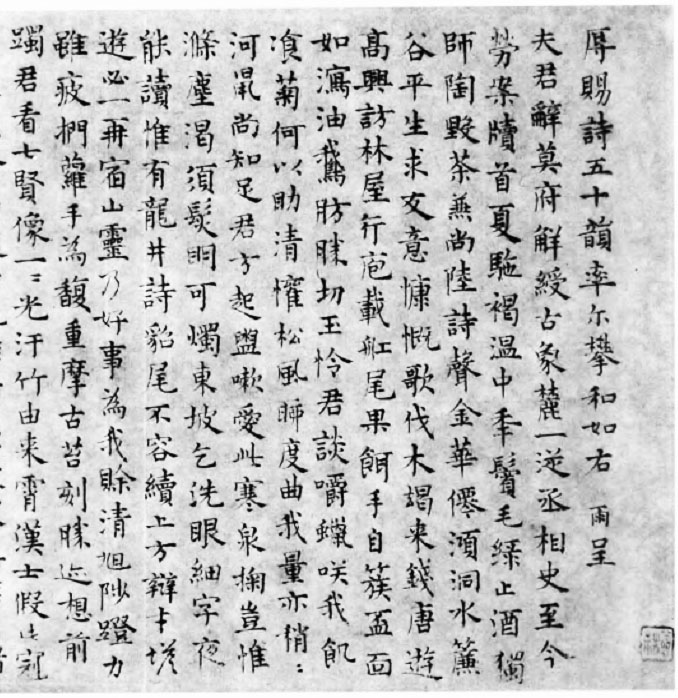 辱賜詩五十韻率尓攀和如右 雨呈
夫君辭莫府解綬古象麓一逆丞相史至今
勞案牘首夏駞褐温中秊鬢毛緑止酒獨
師陶斅茶兼尚陸詩聲金華僊澒洞水簾
谷平生求友意慷慨歌伐木朅来錢唐遊
高興訪林屋行庖載舡尾果餌手自蔟盃面
如瀉油鵞肪勝切玉怜君談嚼蠟咲我飢
飡菊何以助清懽松風時度曲我量亦稍〻
河鼠尚知足君方起盥嗽愛此寒泉掬豈惟
滌塵渴須髮明可燭東坡乞洗眼細字夜
能讀惟有龍井詩貂尾不容續上方辯才塔
遊必一再宿山靈乃好事為我賒清旭陟蹬力
雖疲捫蘿手為馥重摩古苔刻勝迹想前
躅君看七賢像一〻光汗竹由来霄漢士假